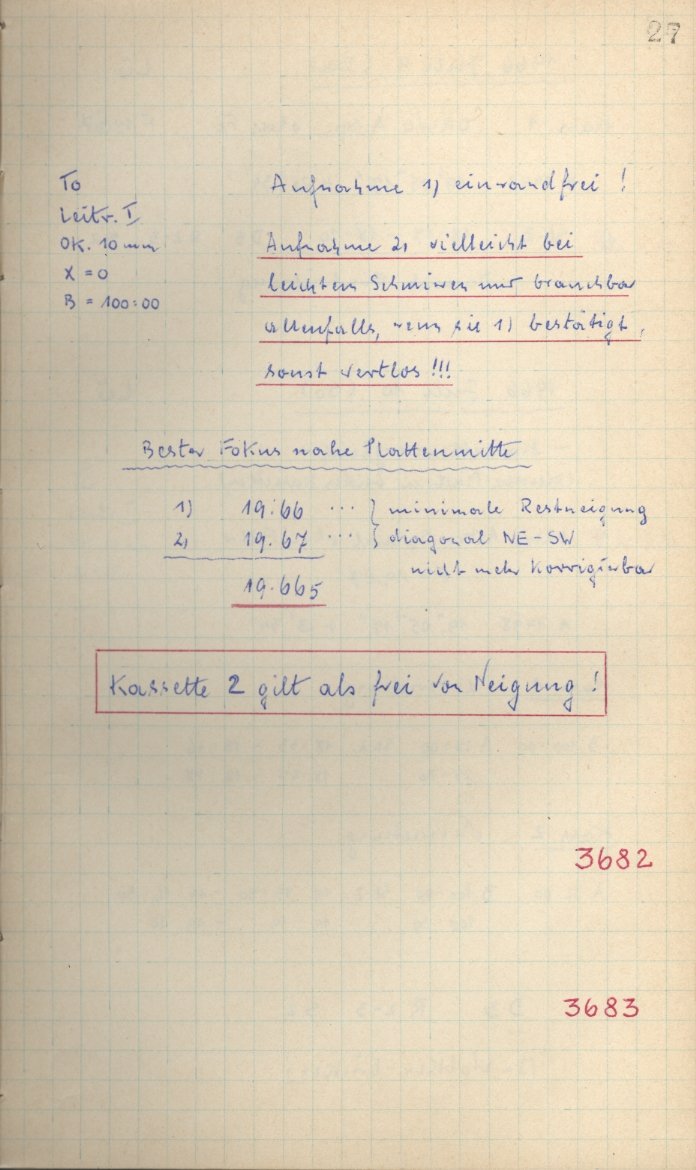 27
To
Leitr. I
OK. 10 mm
X = 0
B = 100:00
Aufnahme 1) einwandfrei !
Aufnahme 2) vielleicht bei
leichtem Schmieren nur brauchbar
allenfalls, wenn sie 1) bestätigt,
sonst wertlos !!!
Bester Fokus nahe Plattenmitte
1) 19.66 ... } minimale Restneigung
2) 19.67 ... } diagonal NE-SW
nicht mehr korrigierbar
19.665
Kassette 2 gilt als frei von Neigung !
3682
3683